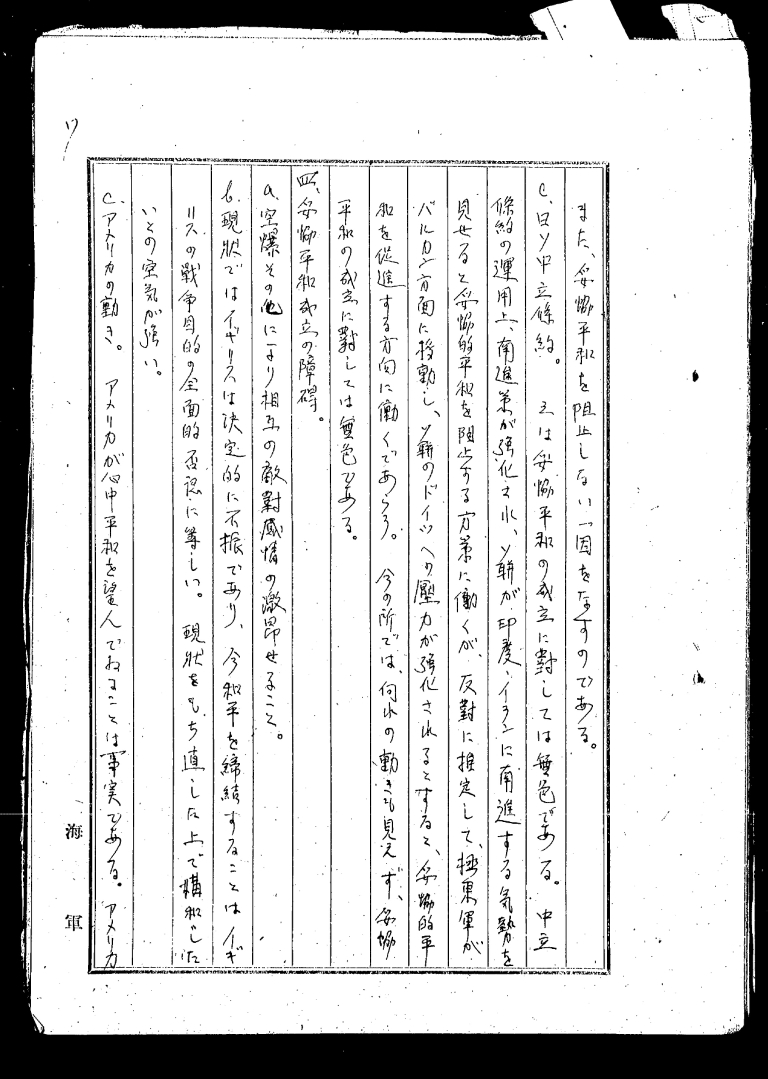 また、妥協平和を阻止しない一因をなすのである。
c. 日ソ中立條約。 之は妥協平和の成立に對しては無色である。中立
條約の運用上、南進策が強化され、ソ聯が印度、イランに南進する気勢を
見せると妥協的平和を阻止する方策に働くが、反對に推定して、極東軍が
バルカン方面に移動し、ソ聯のドイツへの壓力が強化されるとすると、妥協的平
和を促進する方向に働くであらう。 今の所では、何れの動きも見えず、妥協
平和の成立に對しては無色である。
四、妥協平和成立の障碍。
a. 空爆その他により相互の敵對感情の激昂せること。
b. 現状ではイギリスは決定的に不振であり、今和平を締結することはイギ
リスの戦争目的の全面的否認に等しい。 現状をもち直した上で媾和したい
いとの空気が強い。
c. アメリカの動き。 アメリカが心中平和を望んでゐることは事実である。アメリカ
海軍
17